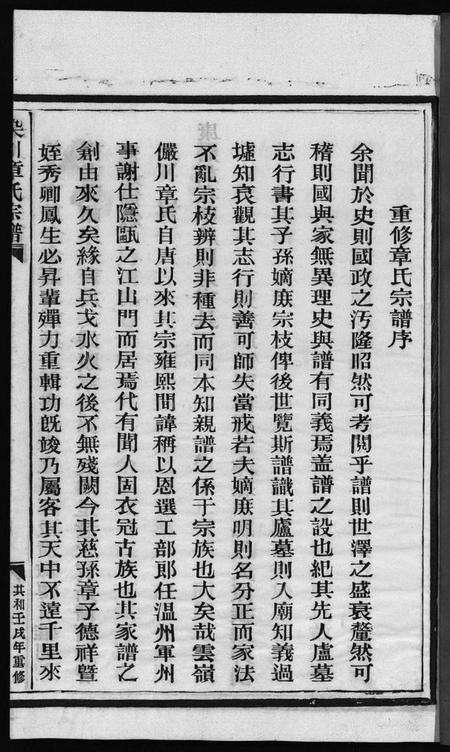 重修章氏宗譜序
余聞於史則國政之汚隆昭然可考閱乎譜則世澤之盛衰釐然可
稽則國與家無異理史與譜有同義焉盖譜之設也紀其先人廬墓
志行書其子孫嫡庶宗枝俾後世覽斯譜識其廬墓則入廟知義過
墟知哀觀其志行則善可師失當戒若夫嫡庶明則名分正而家法
不亂宗枝辨則非種去而同本知親譜之係于宗族也大矣哉雲嶺
儼川章氏自唐以來其宗雍熙間諱稱以恩選工部郎任温州軍州
事謝仕隱甌之江山門而居焉代有聞人固衣冠古族也其家譜之
創由來久矣緣自兵戈水火之後不無殘闕今其慈孫章子德祥曁
姪秀卿鳳生必昇輩殫力重輯功既竣乃屬客其天中不遠千里來
川章氏宗譜
共和壬戌年重修